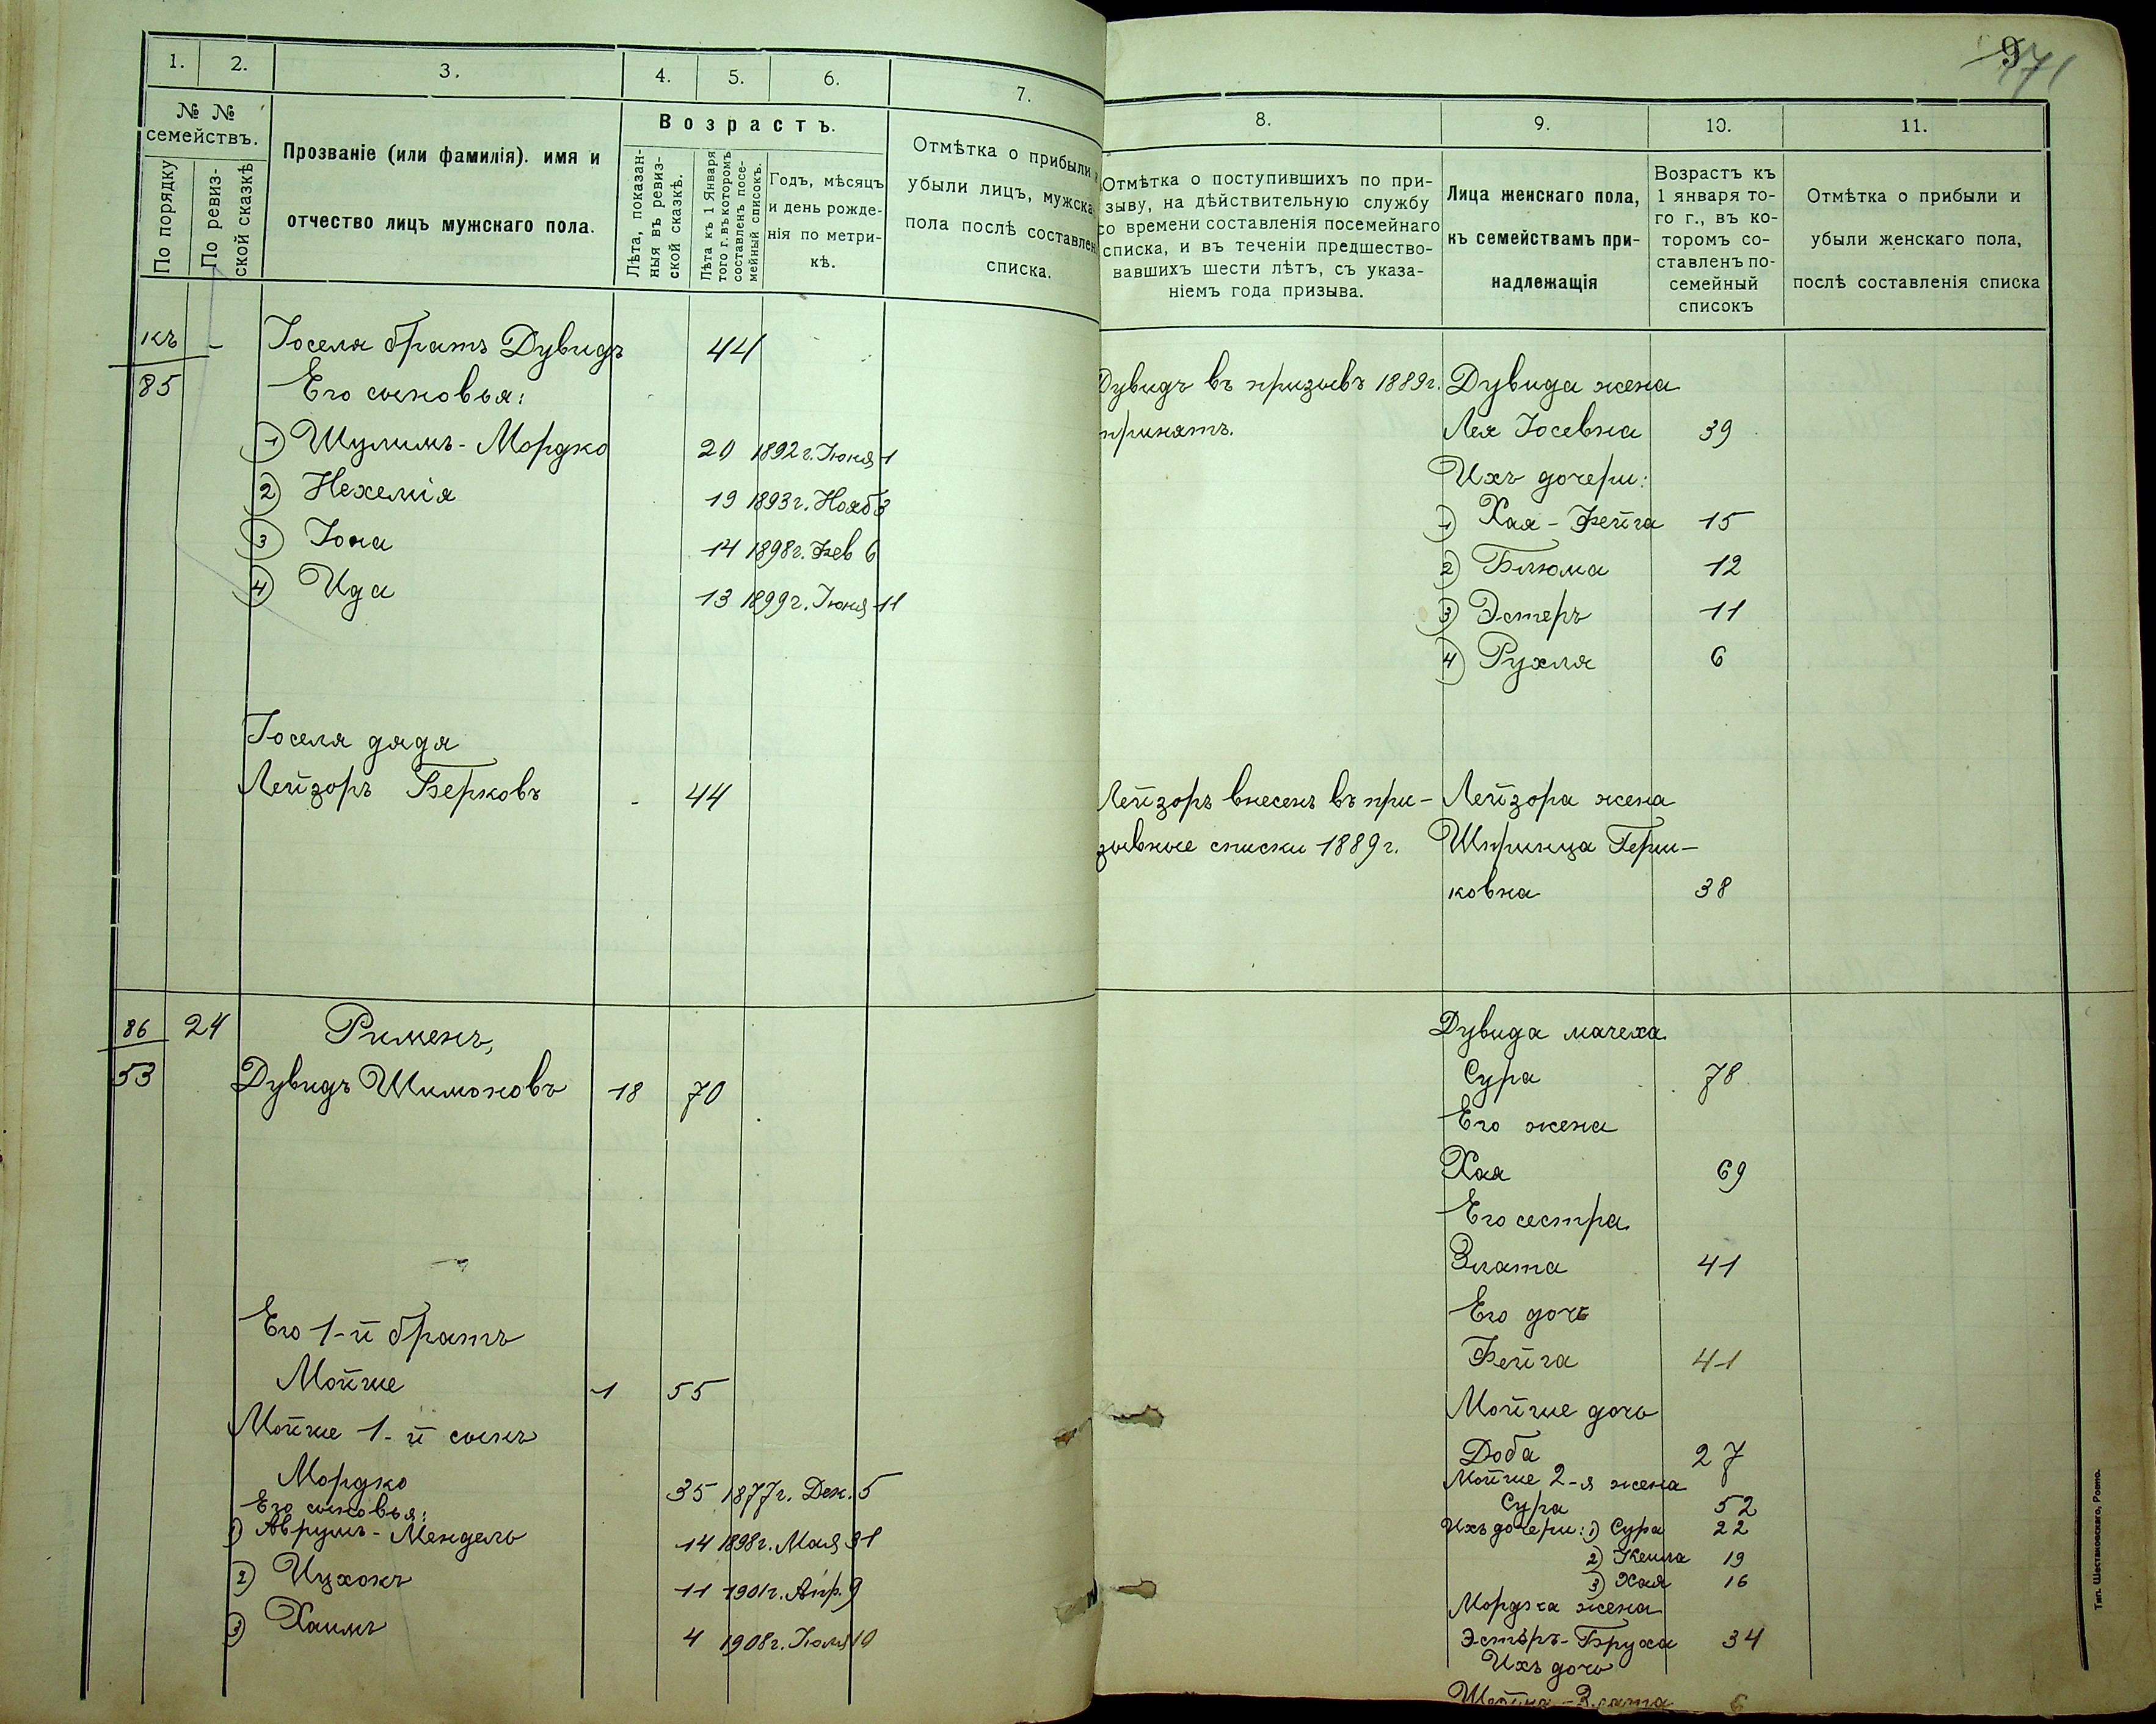 1.
2.
3.
4.
5.
6.
7.
№ №
семействъ.
По порядку
По ревиз-
ской сказкѣ
Прозваніе (или фамилія). имя и
отчество лицъ мужскаго пола.
Возрастъ.
Лѣта, показан-
ныя въ ревиз-
ской сказкѣ.
Лѣта къ 1 Января
того г. въ которомъ
составленъ посе-
мейный списокъ.
Годъ, мѣсяцъ
и день рожде-
нія по метри-
кѣ.
Отмѣтка о прибыли
убыли лицъ, мужска
пола послѣ составлен
списка.
къ - Іоселя братъ Дувидъ 44
85 Его сыновья:
1) Шулимъ-Мордко 20 1892г. Іюня 1
2) Нехемія 19 1893г. Нояб 3
3 Іона 14 1898г. Фев 6
4) Ида 13 1899г. Іюня 11
Іоселя дядя
Лейзоръ Берковъ - 44
86 24 Рименъ,
53 Дувидъ Шимоновъ 18 70
Его 1-й братъ
Мойше 1 55
Мойше 1-й сынъ
Мордко 35 1877г. Дек. 5
Его сыновья:
1) Аврумъ-Мендель 14 1898г. Мая 31
2) Ицхокъ 11 1901г. Апр. 9
3) Хаимъ 4 1908г. Іюля 10
971
8.
9.
10.
11.
Отмѣтка о поступившихъ по при-
зыву, на дѣйствительную службу
со времени составленія посемейнаго
списка, и въ теченіи предшество-
вавшихъ шести лѣтъ, съ указа-
ніемъ года призыва.
Лица женскаго пола,
къ семействамъ при-
надлежащія
Возрастъ къ
1 января то-
го г., въ ко-
торомъ со-
ставленъ по-
семейный
списокъ
Отмѣтка о прибыли и
убыли женскаго пола,
послѣ составленія списка
Дувидъ въ призывъ 1889г. Дувида жена
принятъ. Лея Іосевна 39
Ихъ дочери:
1) Хая-Фейга 15
2) Блюма 12
3) Эстеръ 11
4) Рухля 6
Лейзоръ внесенъ въ при- Лейзора жена
зывные списки 1889г. Шпринца Герш-
ковна 38
Дувида мачеха
Сура 78
Его жена
Хая 69
Его сестра
Злата 41
Его дочь
Фейга 41
Мойше дочь
Доба 27
Мойше 2-я жена
Сура 52
Ихъ дочери: 1) Сура 22
2) Кейла 19
3) Хая 16
Мордка жена
Эстеръ-Бруха 34
Ихъ дочь
Злата 6
Тип. Шестаковскаго, Ровно.